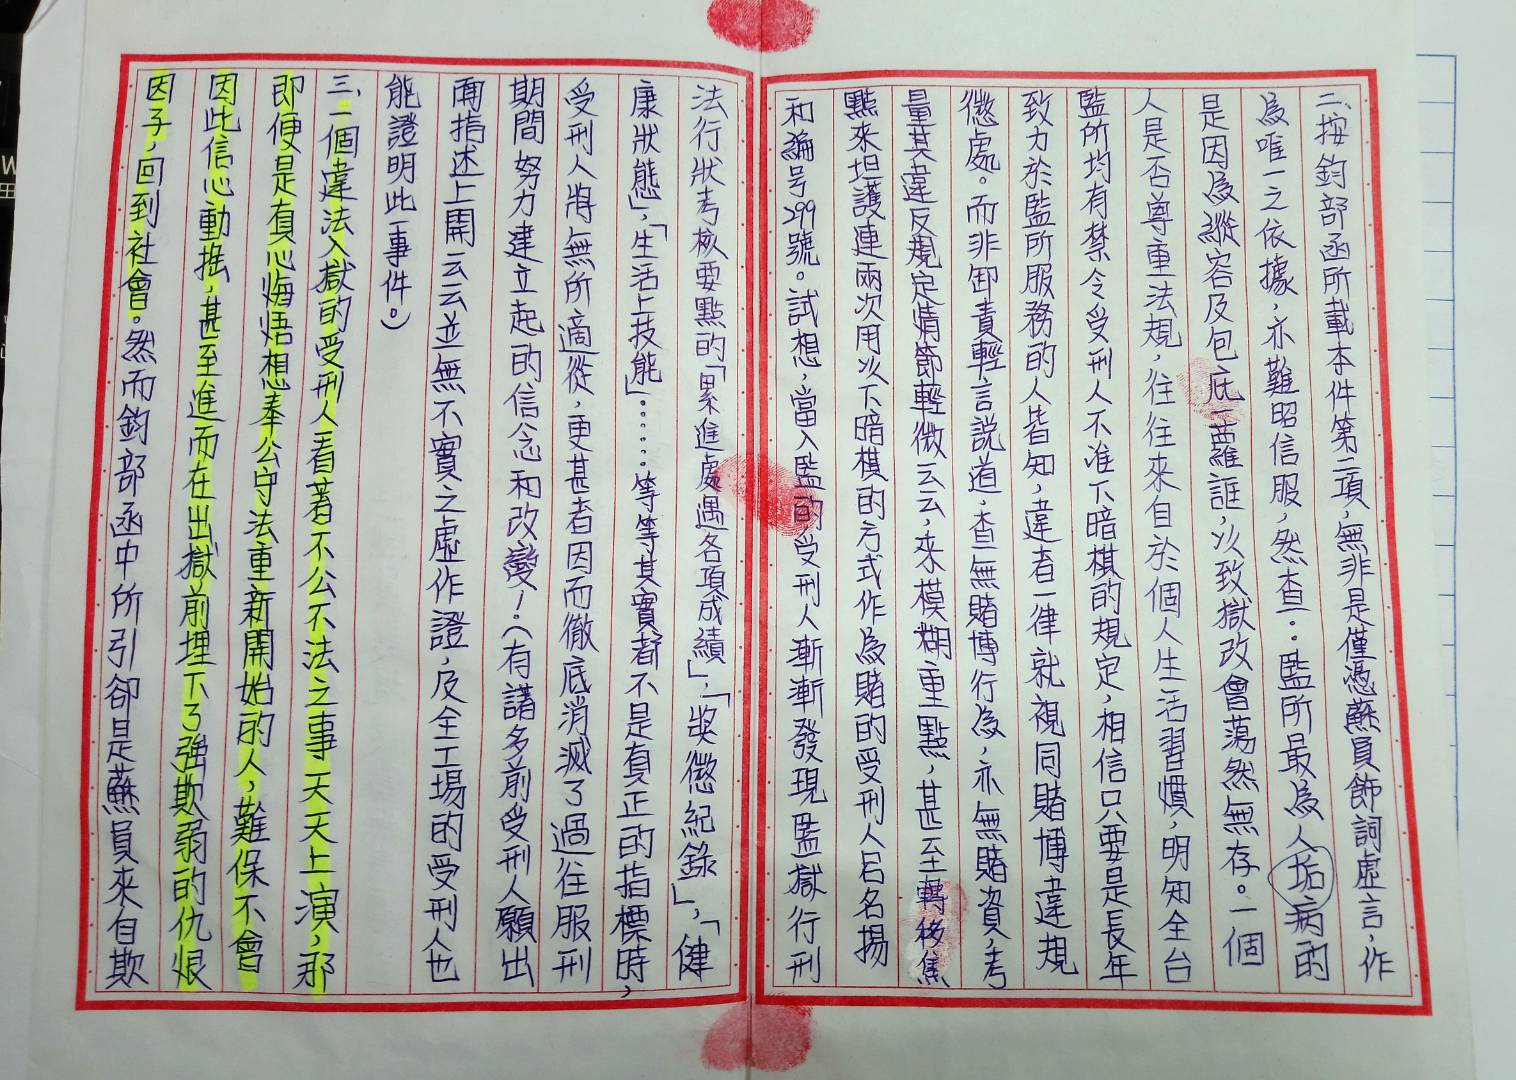 二、按鈞部函所載本件第二項，無非是僅憑蘇員飾詞虛言，作
為唯一之依據，亦難昭信服，然查：監所最為人垢病的
是因為縱容及包庇一蘿誆，以致獄改會蕩然無存。一個
人是否尊重法規，往往來自於個人生活習慣，明知全台
監所均有禁令受刑人不准下暗棋的規定，相信只要是長年
致力於監所服務的人皆知，違者一律就視同賭博違規
懲處。而非卸責輕言說道，查無賭博行為，亦無賭資，考
量其違反規定情節輕微云云，來模糊重點，甚至轉移焦
點來坦護連兩次用以下暗棋的方式作為賭的受刑人呂名揚
和編号299號。試想，當入監的受刑人漸漸發現監獄行刑
法行狀考核要點的「累進處遇各項成績」，「獎懲紀錄」，「健
康狀態」，「生活上技能」……等等其實都不是真正的指標時，
受刑人將無所適從，更甚者因而徹底消滅了過往服刑
期間努力建立起的信念和改變！（有諸多前受刑人願出
面指述上開云云並無不實之虛作證，及全工場的受刑人也
能證明此事件。）
三、一個違法入獄的受刑人看著不公不法之事天天上演，那
即便是真心悔悟想奉公守法重新開始的人，難保不會
因此信心動搖，甚至進而在出獄前埋下了強欺弱的仇恨
因子，回到社會。然而鈞部函中所引卻是蘇員來自欺